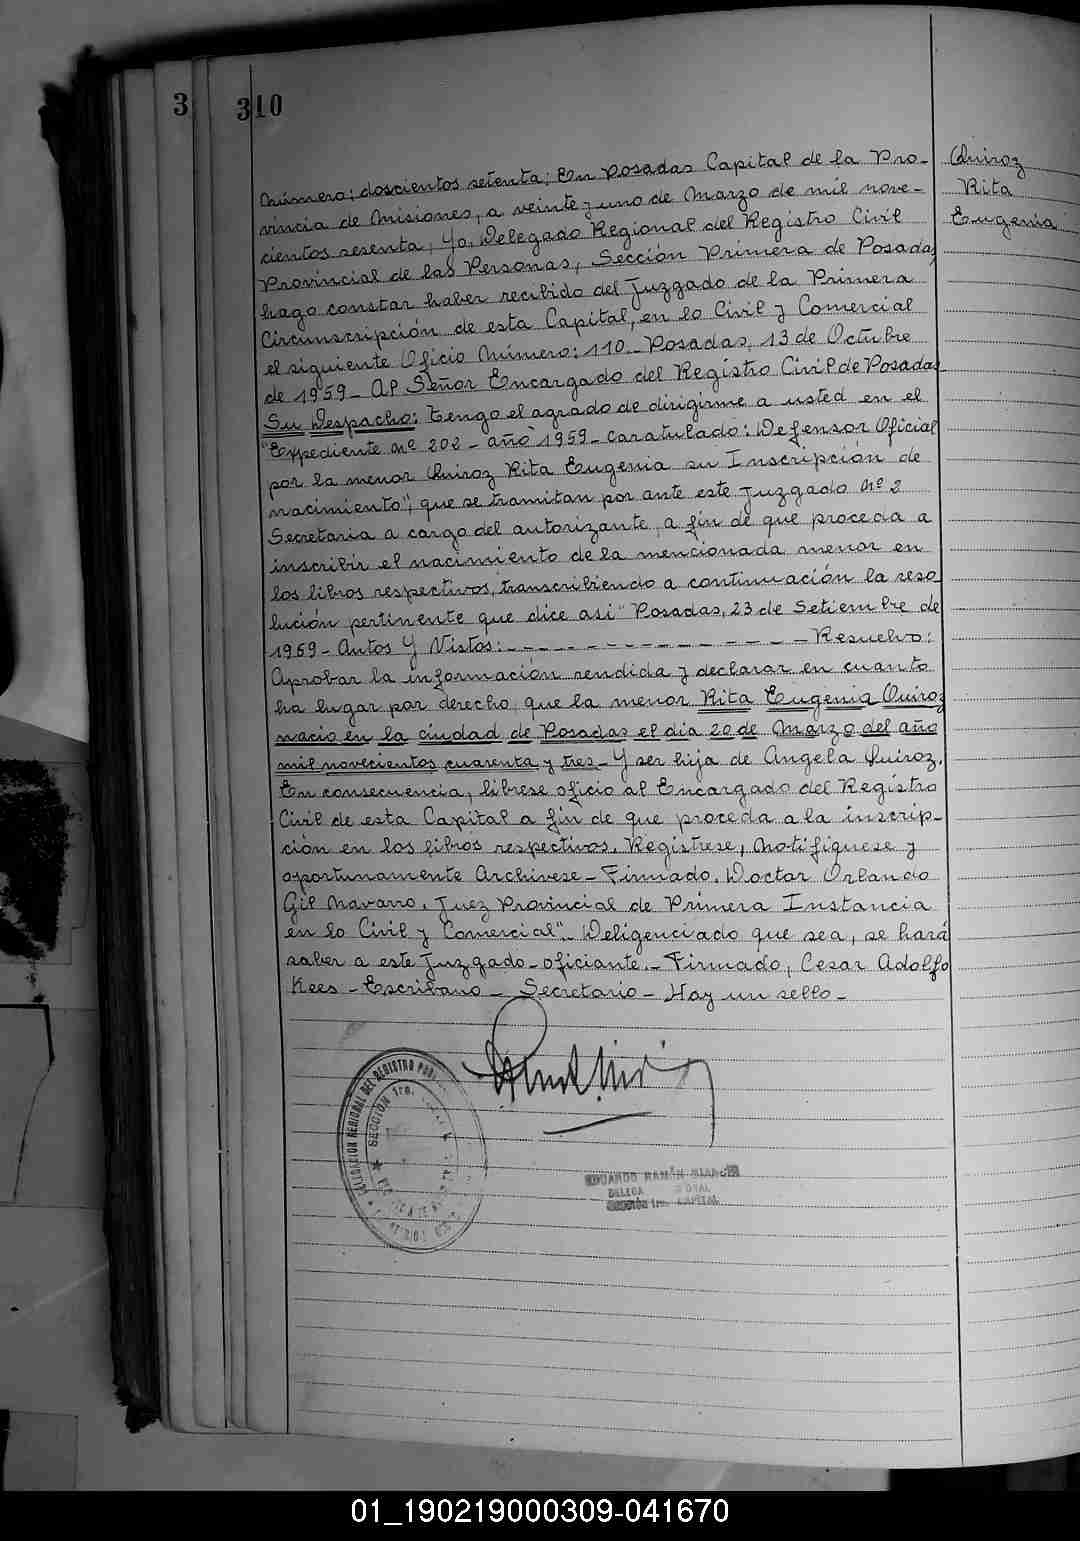 3
310
Quiroz
Rita
Eugenia
Número: doscientos setenta: En Posadas Capital de la Pro-
vincia de Misiones, a veinte y uno de Marzo de mil nove-
cientos sesenta, Yo, Delegado Regional del Registro Civil
Provincial de las Personas, Sección Primera de Posadas,
hago constar haber recibido del Juzgado de la Primera
Circunscripción de esta Capital, en lo Civil y Comercial
el siguiente Oficio Número: 110 - Posadas, 13 de Octubre
de 1959 - Al Señor Encargado del Registro Civil de Posadas
Su Despacho: Tengo el agrado de dirigirme a usted en el
"Expediente Nº 202 - año 1959 - caratulado: Defensor Oficial
por la menor Quiroz Rita Eugenia su Inscripción de
nacimiento", que se tramitan por ante este Juzgado Nº 2
Secretaria a cargo del autorizante, a fin de que proceda a
inscribir el nacimiento de la mencionada menor en
los libros respectivos, transcribiendo a continuación la reso
lución pertinente que dice asi "Posadas, 23 de Setiembre de
1959 - Autos Y Vistos: - - - - - - - - - - - - Resuelvo:
Aprobar la información rendida y declarar en cuanto
ha lugar por derecho, que la menor Rita Eugenia Quiroz
nacio en la ciudad de Posadas el dia 20 de Marzo del año
mil novecientos cuarenta y tres - Y ser hija de Angela Quiroz.
En consecuencia, librese oficio al Encargado del Registro
Civil de esta Capital a fin de que proceda a la inscrip-
ción en los libros respectivos. Registrese, Notifiquese y
oportunamente Archivese - Firmado. Doctor Orlando
Gil Navarro, Juez Provincial de Primera Instancia
en lo Civil y Comercial". Deligenciado que sea, se hará
saber a este Juzgado - oficiante. - Firmado, Cesar Adolfo
Kees - Escribano - Secretario - Hay un sello -
DELEGACION REGIONAL DEL REGISTRO
SECCIÓN 1ra.
EDUARDO RAMÓN
SECCIÓN 1ra. CAPITAL
01_190219000309-041670